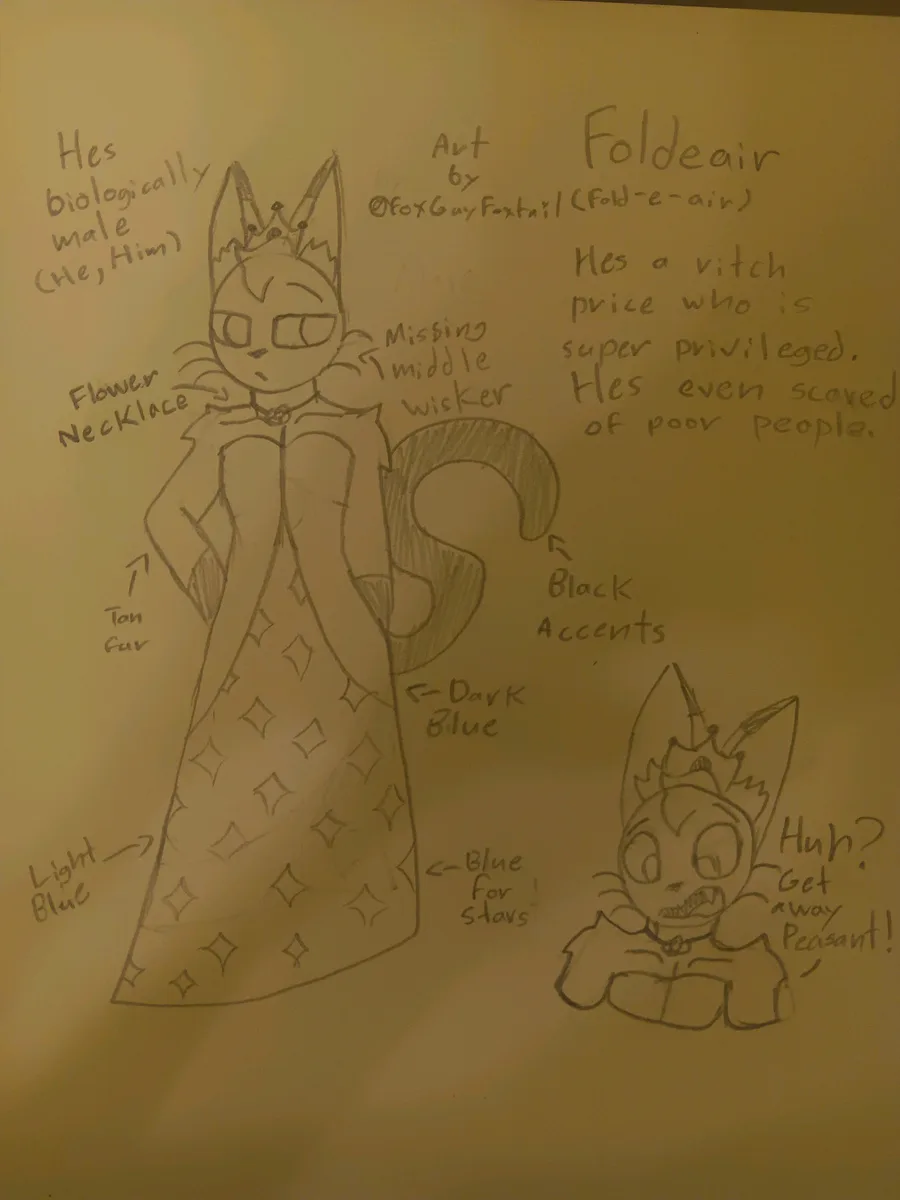 Hes
biologically
male
(He, Him)
Art
by
@FoxGuyFoxtail
Foldeair
(Fold-e-air)
Hes a ritch
price who is
super privileged.
Hes even scared
of poor people.
Missing
middle
wisker
Flower
Necklace
Tan
fur
Black
Accents
Dark
Blue
Light
Blue
Blue
for
stars
Huh?
Get
away
Peasant!